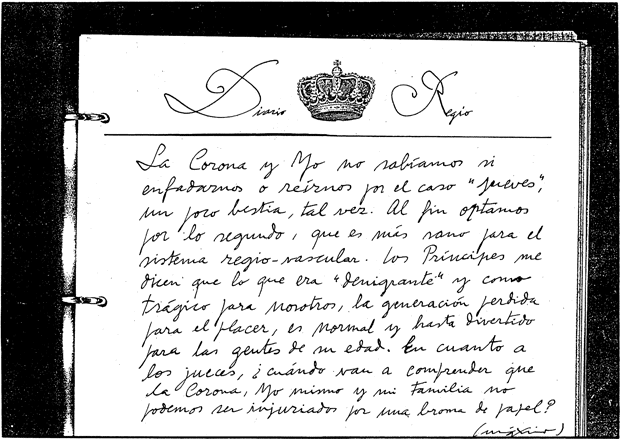 Diario Regio
La Corona y Yo no sabíamos si
enfadarnos o reírnos por el caso "Jueves",
un poco bestia, tal vez. Al fin optamos
por lo segundo, que es más sano para el
sistema regio-vascular. Los Príncipes me
dicen que lo que era "denigrante" y como
trágico para nosotros, la generación perdida
para el placer, es normal y hasta divertido
para las gentes de su edad. En cuanto a
los jueces, ¿cuándo van a comprender que
la Corona, Yo mismo y mi familia no
podemos ser injuriados por una broma de papel?
(máximo)